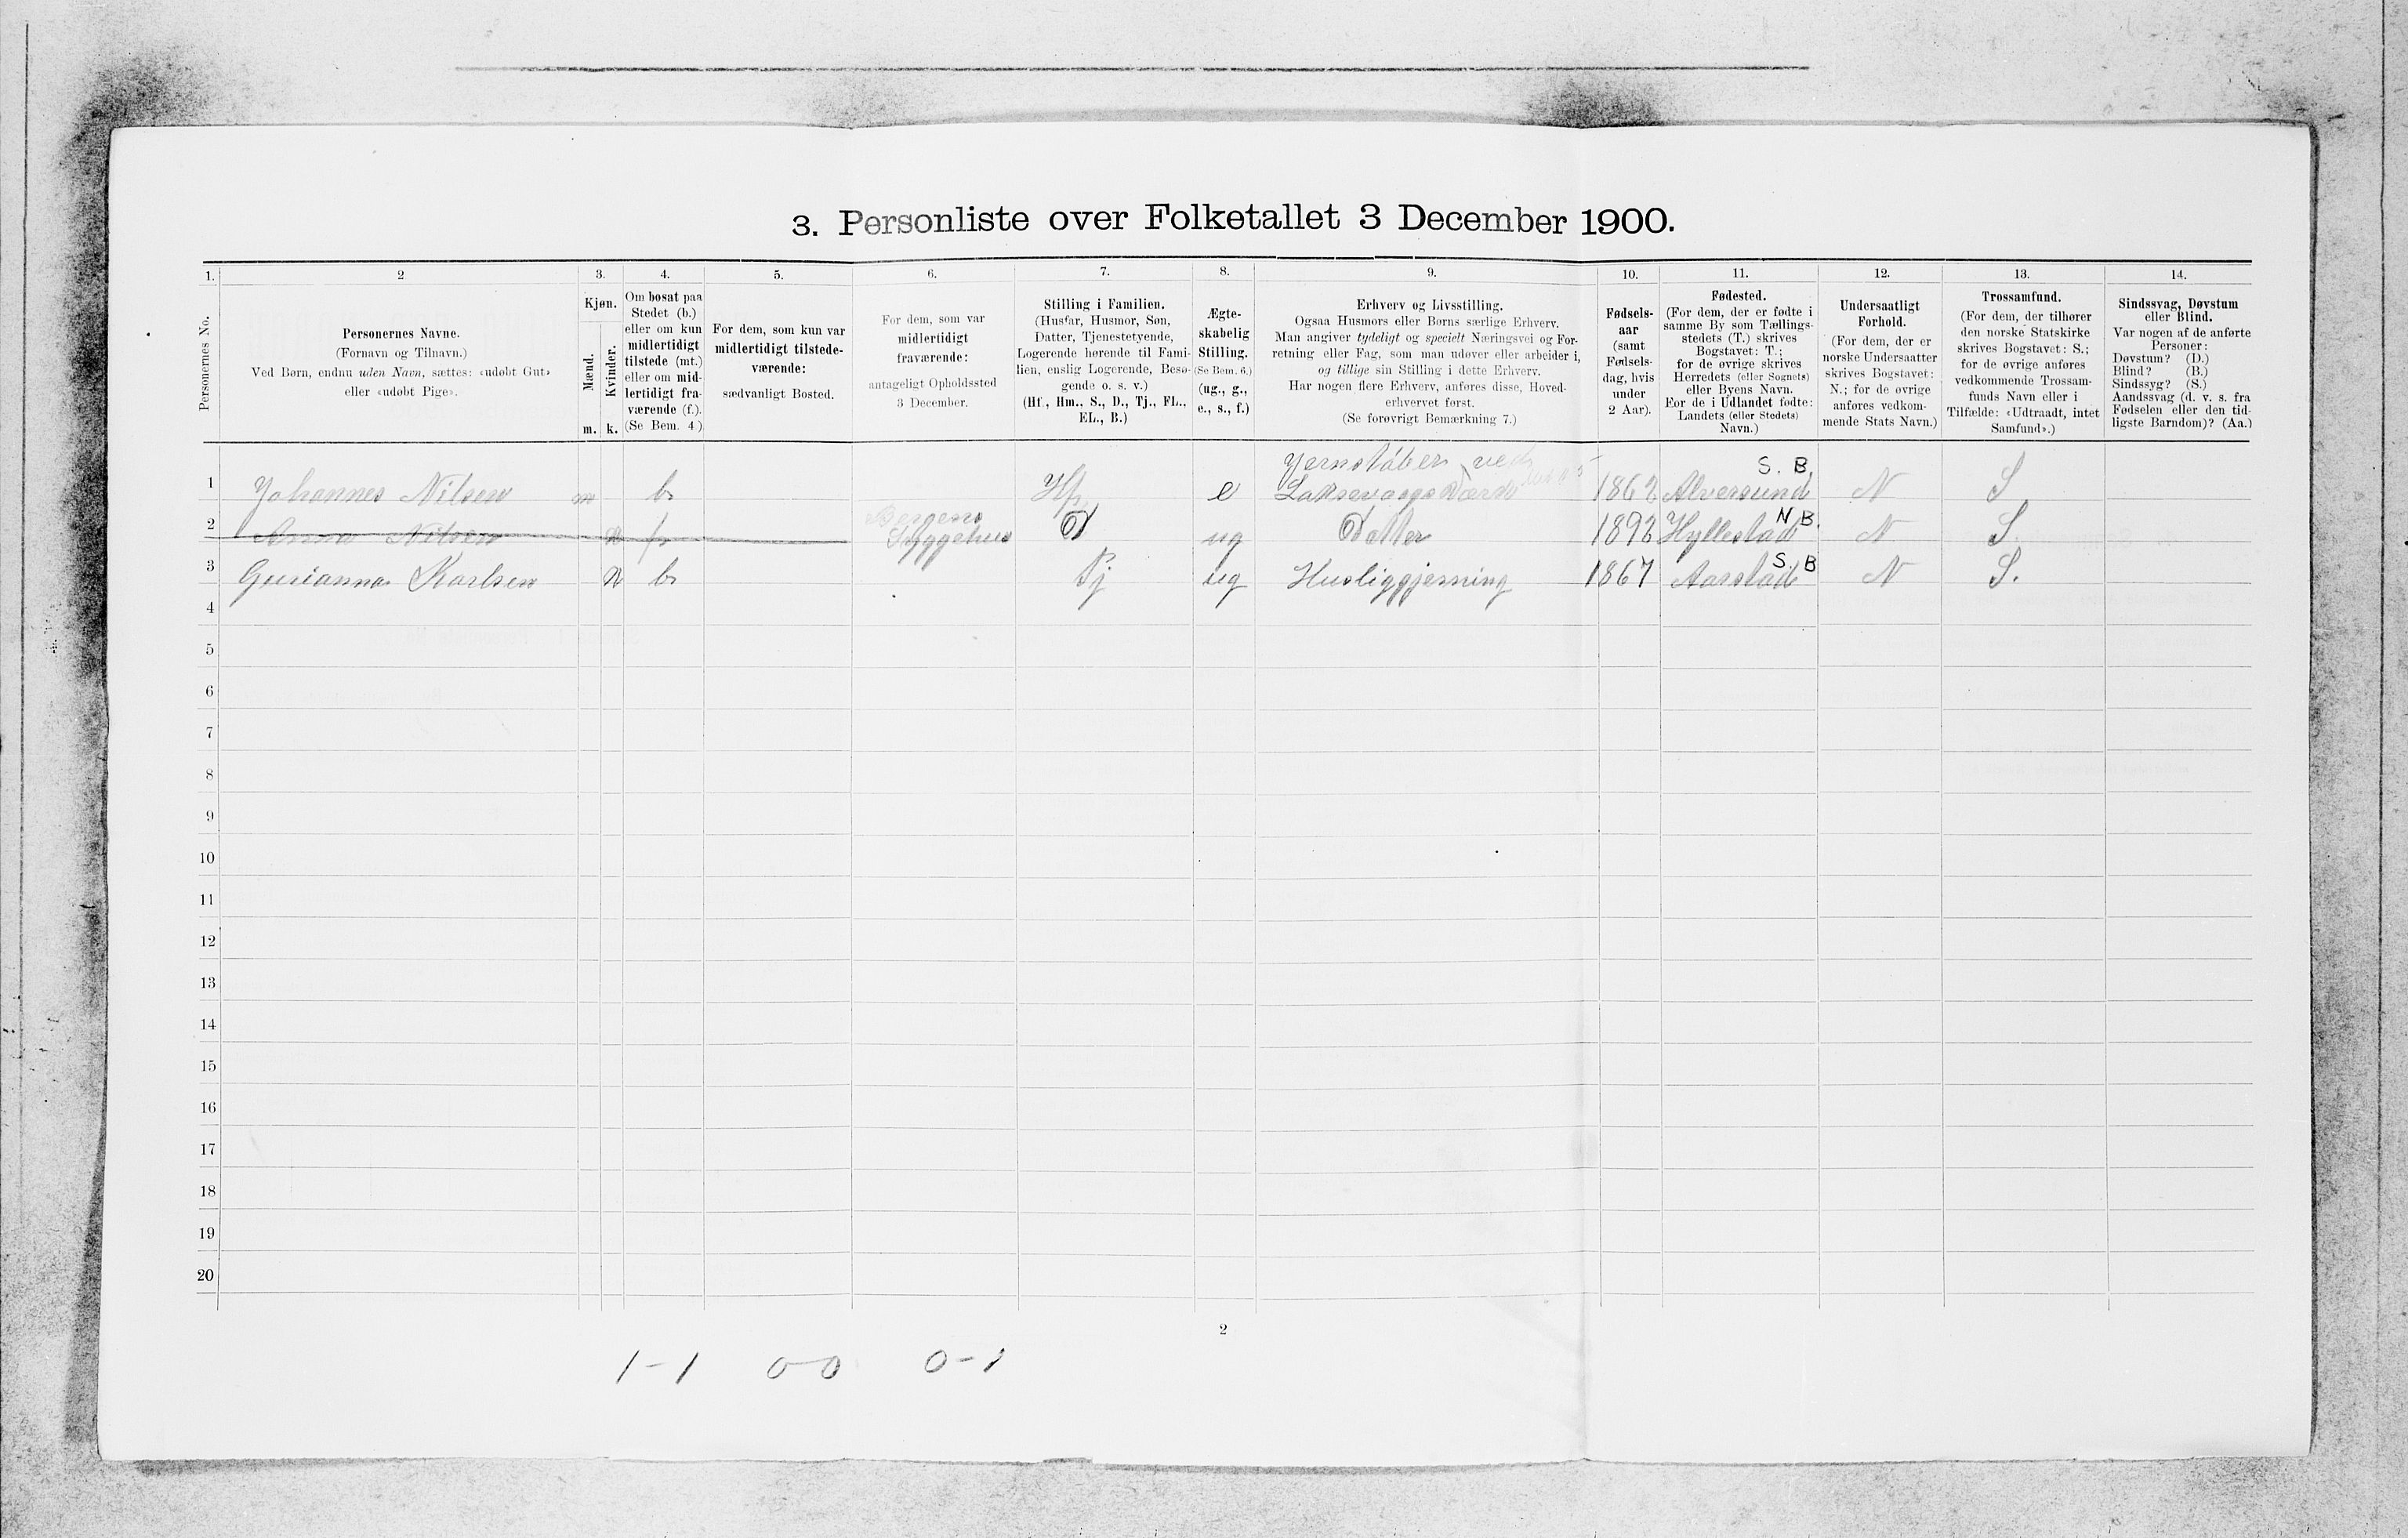 3. Personliste over Folketallet 3 December 1900.
1. 2 3. 4. 5. 6. 7. 8. 9. 10. 11. 12. 13. 14.
Personernes No.
Personernes Navne.
(Fornavn og Tilnavn.)
Ved Børn, endnu uden Navn, sættes: «udøbt Gut»
eller «udøbt Pige».
Kjøn.
Mænd.
m.
Kvinder.
k.
Om bosat paa
Stedet (b.)
eller om kun
midlertidigt
tilstede (mt.)
eller om mid-
lertidigt fra-
værende (f.).
(Se Bem. 4.)
For dem, som kun var
midlertidigt tilstede-
værende:
sædvanligt Bosted.
For dem, som var
midlertidigt
fraværende:
antageligt Opholdssted
3 December.
Stilling i Familien.
(Husfar, Husmor, Søn,
Datter, Tjenestetyende,
Logerende hørende til Fami-
lien, enslig Logerende, Besø-
gende o. s. v.)
(Hf., Hm., S., D., Tj., FL.,
EL., B.)
Ægte-
skabelig
Stilling.
(Se Bem. 6.)
(ug., g.,
e., s., f.)
Erhverv og Livsstilling.
Ogsaa Husmors eller Børns særlige Erhverv.
Man angiver tydeligt og specielt Næringsvei og For-
retning eller Fag, som man udøver eller arbeider i,
og tillige sin Stilling i dette Erhverv.
Har nogen flere Erhverv, anføres disse, Hoved-
erhvervet først.
(Se forøvrigt Bemærkning 7.)
Fødsels-
aar
(samt
Fødsels-
dag, hvis
under
2 Aar).
Fødested.
(For dem, der er fødte i
samme By som Tællings-
stedets (T.) skrives
Bogstavet: T.;
for de øvrige skrives
Herredets (eller Sognets)
eller Byens Navn.
For de i Udlandet fødte:
Landets (eller Stedets)
Navn.)
Undersaatligt
Forhold.
(For dem, der er
norske Undersaatter
skrives Bogstavet:
N.; for de øvrige
anføres vedkom-
mende Stats Navn.)
Trossamfund.
(For dem, der tilhører
den norske Statskirke
skrives Bogstavet: S.;
for de øvrige anføres
vedkommende Trossam-
funds Navn eller i
Tilfælde: «Udtraadt, intet
Samfund».)
Sindssvag, Døvstum
eller Blind.
Var nogen af de anførte
Personer:
Døvstum? (D.)
Blind? (B.)
Sindssyg? (S.)
Aandssvag (d. v. s. fra
Fødselen eller den tid-
ligste Barndom)? (Aa.)
Jernstøber ved S. B.
1 Johannes Nilsen m b Hf e Laksevaags Værk 1862 Alversund N S
Bergens N B.
2 Anna Nilsen k f Sygehus D ug Datter 1892 Hyllestad N S
S. B
3 Gurianna Karlsen k b Tj ug Husliggjerning 1867 Aarstad N S.
4
5
6
7
8
9
10
11
12
13
14
15
16
17
18
19
20
2
1-1 0-0 0-1